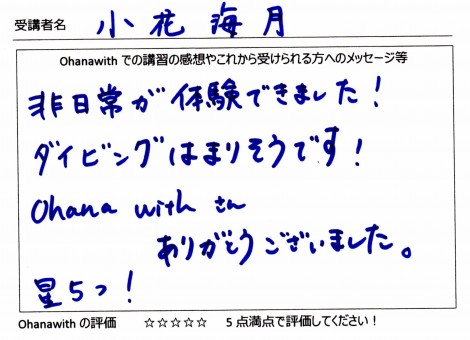 受講者名 小花海月
Ohanawith での講習の感想やこれから受けられる方へのメッセージ等
非日常が体験できました！
ダイビングはまりそうです！
Ohana with さん
ありがとうございました。
星5つ！
Ohanawith の評価 ☆☆☆☆☆ 5 点満点で評価してください！